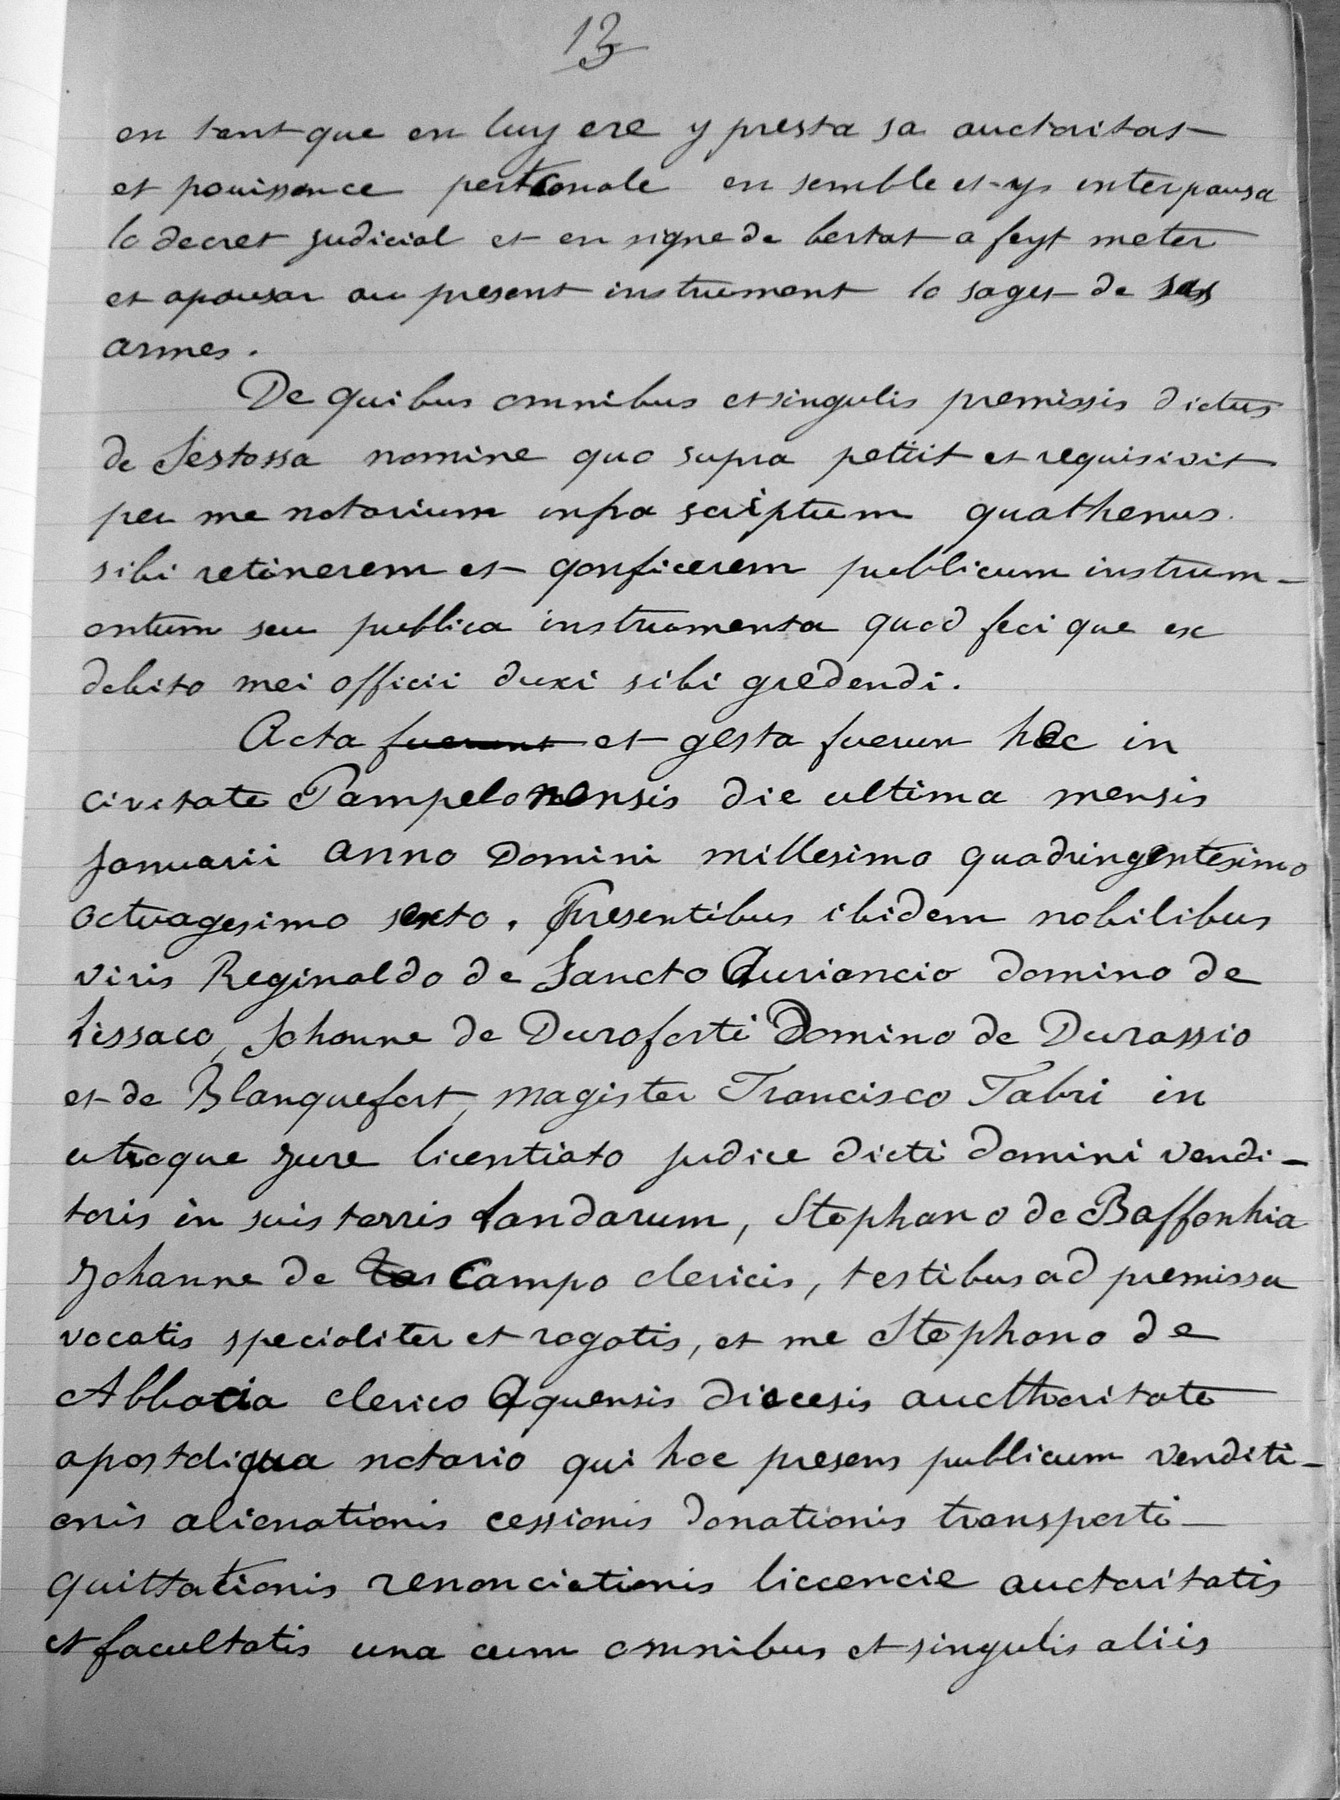 13
en tant que en luy ere y presta sa auctoritat
et pouissence personale en semble et y interpausa
lo decret judicial et en signe de bertat a feyt meter
et apausar au present instrument lo saget de sas
armes.
De quibus omnibus et singulis premissis dictus
de Sestossa nomine quo supra petiit et requisivit
per me notarium infra scriptum quathenus
sibi retinerem et conficerem publicum instrum-
entum seu publica instrumenta quod feci que ex
debito mei officii duxi sibi gredendi.
Acta fuerunt et gesta fuerun hec in
civitate Pampelonensis die ultima mensis
Januarii anno Domini millesimo quadringentesimo
octuagesimo sexto. Presentibus ibidem nobilibus
viris Reginaldo de Sancto Auriancio domino de
Lissaco, Johanne de Duroforti Domino de Durassio
et de Blanquefort, magister Francisco Fabri in
utroque jure licentiato judice dicti domini vendi-
toris in suis terris Landarum, Stephano de Baffonhia
Johanne de Campo clericis, testibus ad premissa
vocatis specialiter et rogatis, et me Stephano de
Abbacia clerico Aquensis diocesis aucthoritate
apostoliqua notario qui hoc presens publicum venditi-
onis alienationis cessionis donationis transporti
quittationis renonciationis liccencie auctoritatis
et facultatis una cum omnibus et singulis aliis